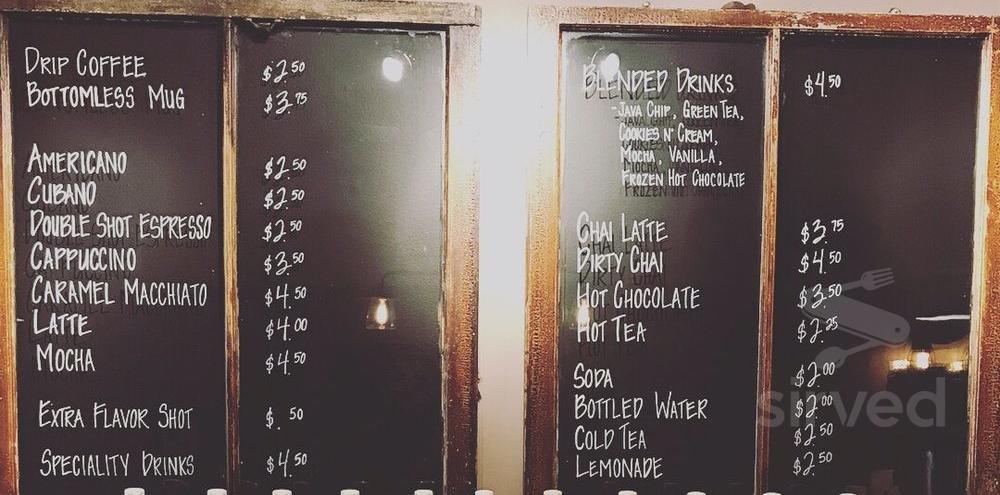 DRIP COFFEE $2.50
BOTTOMLESS MUG $3.75
AMERICANO $2.50
CUBANO $2.50
DOUBLE SHOT ESPRESSO $2.50
CAPPUCCINO $3.50
CARAMEL MACCHIATO $4.50
LATTE $4.00
MOCHA $4.50
EXTRA FLAVOR SHOT $.50
SPECIALITY DRINKS $4.50
BLENDED DRINKS $4.50
-JAVA CHIP, GREEN TEA,
COOKIES N' CREAM,
MOCHA, VANILLA,
FROZEN HOT CHOCOLATE
CHAI LATTE $3.75
DIRTY CHAI $4.50
HOT CHOCOLATE $3.50
HOT TEA $2.25
SODA $2.00
BOTTLED WATER $2.00
COLD TEA $2.50
LEMONADE $2.50
sirved